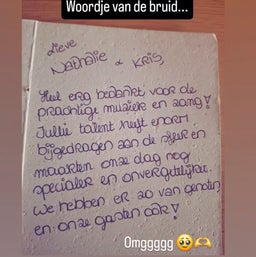 Woordje van de bruid...
Lieve
Nathalie & Kris,
Heel erg bedankt voor de
prachtige muziek en zang!
Jullie talent heeft enorm
bijgedragen aan de sfeer en
maakten onze dag nog
specialer en onvergetelijker.
We hebben er zo van genoten
en onze gasten ook!
Omggggg 🥹🫶